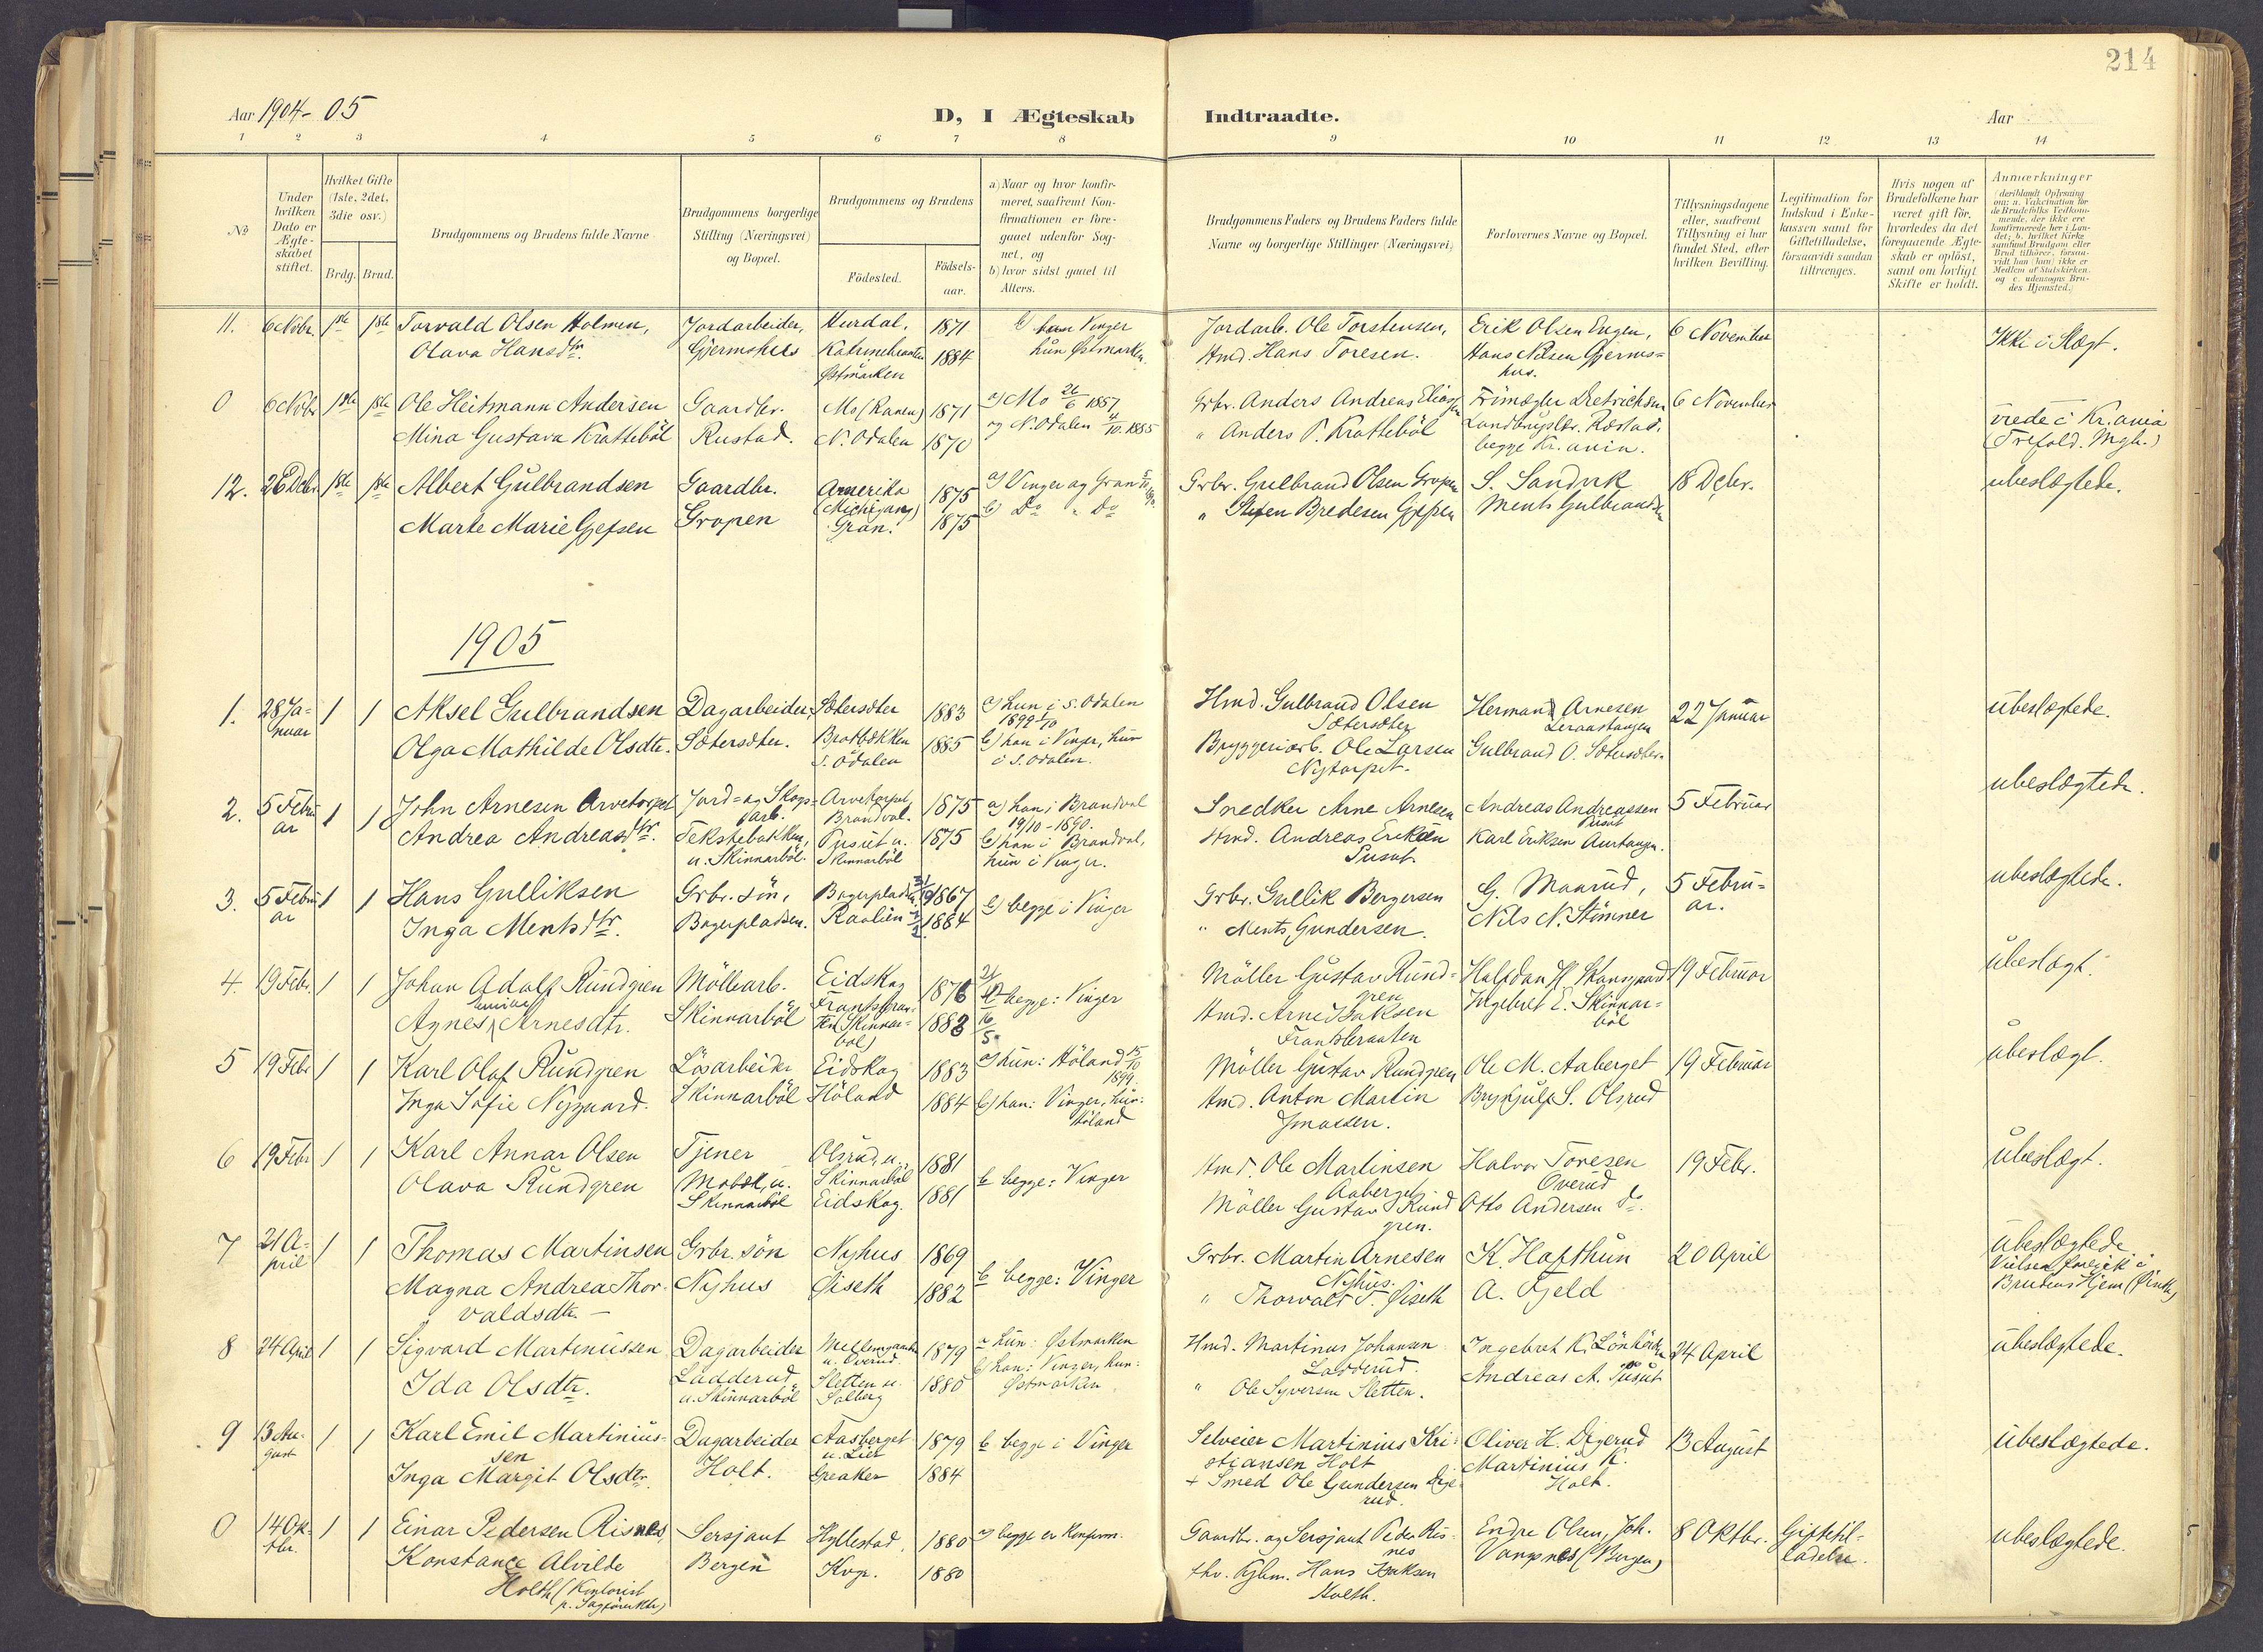 214
Aar 1904-05
D, I Ægteskab Indtraadte.
Aar
1 2 3 4 5 6 7 8 9 10 11 12 13 14
No
Under hvilken Dato er Ægteskabet stiftet.
Hvilket Gifte (1ste, 2det, 3die osv.)
Brdg. Brud.
Brudgommens og Brudens fulde Navne
Brudgommens borgerlige Stilling (Næringsvei) og Bopæl.
Brudgommens og Brudens
Födested.
Födselsaar.
a) Naar og hvor konfirmeret, saafremt Konfirmationen er foregaaet udenfor Sognet, og
b) hvor sidst gaaet til Alters.
Brudgommens Faders og Brudens Faders fulde Navne og borgerlige Stillinger (Næringsvei)
Forlovernes Navne og Bopæl.
Tillysningsdagene eller, saafremt Tillysning ei har fundet Sted, efter hvilken Bevilling.
Legitimation for Indskud i Enkekassen samt for Giftetilladelse, forsaavidt saadan tiltrænges.
Hvis nogen af Brudefolkene har været gift för, hvorledes da det foregaaende Ægteskab er oplöst, samt om lovligt Skifte er holdt.
Anmærkninger (deriblandt Oplysning om: a. Vakcination for de Brudefolks Vedkommende, der ikke ere konfirmerede her i Landet; b. hvilket Kirkesamfund Brudgom eller Brud tilhörer, forsaavidt han (hun) ikke er Medlem af Statskirken, og c. udensogns Brudes Hjemsted.)
11. 6 Novbr. 1ste 1ste Torvald Olsen Holmen, Jordarbeider, Hurdal. 1871 b) han Vinger Jordarb. Ole Torstensen, Erik Olsen Engen, 6 November Ikke i Slægt.
Olava Hansdtr. Gjermshus 1884 hun Østmarken Hmd. Hans Toresen. Hans Nilsen Gjermshus.
Østmarken
0 6 Novbr 1ste 1ste Ole Heitmann Andersen Gaardbr. Mo (Ranen) 1871 a) Mo 26/6 1887 Grbr. Anders Andreas Eliassen Dietrichson 6 November viede i Kr.ania
Mina Gustava Krattebøl Rustad. N. Odalen 1870 og N. Odalen 4/10 1885 " Anders P. Krattebøl begge Kr.ania. (Trefold. Mgh.)
12. 26 Debr. 1ste 1ste Albert Gulbrandsen Gaardbr. Amerika (Michigang) 1875 a) Vinger og Gran Grbr. Gulbrand Olsen Gropen S. Sandvik 18 Debr. ubeslægtede.
Marte Marie Gjefsen Gropen Gran. 1875 b) Do " Do " Steffen Bredesen Gjefsen Ments Gulbrandsen
1905
1. 28 Januar 1 1 Aksel Gulbrandsen Dagarbeider, Sætersæter 1883 a) hun i S. Odalen 1899 1/10 Hmd. Gulbrand Olsen Sætersæter Herman Arnesen Leraastangen 22 Januar ubeslægtede.
Olga Mathilde Olsdtr. Sætersæter. Bratbækken S. Odalen 1885 b) han i Vinger, hun i S. Odalen. Bryggeriarb. Ole Larsen Nytorpet. Gulbrand O. Sætersæter.
2. 5 Februar 1 1 John Arnesen Arvetorpet Jord= og Skogsarb. Arvetorpet, Brandval. 1875 a) han i Brandval 19/10-1890. Snedker Arne Arnesen Andreas Andreassen Pusut 5 Februar ubeslægtede.
Andrea Andreasdtr. u. Skinnarböl. Pusut u. Skinnarböl 1875 b) han i Brandval, hun i Vinger. Hmd. Andreas Eriksen Pusut. Karl Eriksen Aurtangen.
3. 5 Februar 1 1 Hans Gulliksen Grbr. sön, Bogerpladsen 1867 b) begge i Vinger Grbr. Gullik Bergersen G. Maarud, 5 Februar. ubeslægtede.
Inga Mentsdtr. Bogerpladsen. Raalien 1884 " Ments Gundersen. Nils N. Stömner
4. 19 Febr. 1 1 Johan Adolf Rundgren Möllearb. Eidskog 1876 begge: Vinger Möller Gustav Rundgren Halfdan H. Skansgaard 19 Februar ubeslægt.
Agnes Arnesdtr. Skinnarböl 1882 16/5 Hmd. Arne Isaksen Frantsbraaten Ingebret E. Skinnarböl
5 19 Febr 1 1 Karl Olaf Rundgren Lösarbeider Eidskog 1883 a) hun: Höland 15/10 1899. Möller Gustav Rundgren Ole M. Aaberget 19 Februar ubeslægt.
Inga Sofie Nygaard. Skinnarböl Höland 1884 b) han: Vinger, hun: Höland Hmd. Anton Martin Jonassen. Brynjulf S. Olsrud
6 19 Febr 1 1 Karl Annar Olsen Tjener Olsrud, u. Skinnarböl 1881 b begge: Vinger Hmd. Ole Martinsen Aaberget Halvor Toresen Overud 19 Febr. ubeslægt.
Olava Rundgren u. Skinnarböl Eidskog. 1881 Möller Gustav Rundgren. Otto Andersen do.
7 21 April 1 1 Thomas Martinsen Grbr. sön Nyhus 1869 b begge: Vinger Grbr. Martin Arnesen Nyhus. K. Hafthun 20 April ubeslægtede
Magna Andrea Thorvaldsdtr. Nyhus Øiseth 1882 " Thorvald T. Øiseth A. Fjeld Vielsen foregik i Brudens Hjem
8 24 April 1 1 Sigvard Martinussen Dagarbeider u. Overud. 1879 a hun: Østmarken Hmd. Martinus Johansen Ladderud. Ingebret K. 24 April ubeslægtede.
Ida Olsdtr. Ladderud u. Skinnarböl Sletten u. Solberg 1880 b) han: Vinger, hun: Østmarken " Ole Syversen Sletten. Andreas A. Pusut
9 13 August 1 1 Karl Emil Martiniussen Dagarbeider Aasberget u. Lier 1879 b. begge i Vinger Selveier Martinius Kristiansen Holt Oliver H. Digerud 13 August ubeslægtede.
Inga Margit Olsdtr. Holt. Greaker 1884 + Smed Ole Gundersen Digerud. Martinius K. Holt.
0 14 Oktbr. 1 1 Einar Pedersen Risnes, Sersjant Hyllestad. 1880 a) begge er Konfirm. Gaardbr. og Sersjant Peder Risnes Endre Olsen, Joh. Vangsnes (Bergen) 8 Oktbr. Giftetilladelse. ubeslægtede.
Konstance Alvilde Holth (Kontorist p. Sagförerktr) Bergen Kvgr. 1880 fhv. Hans Isaksen Holth.